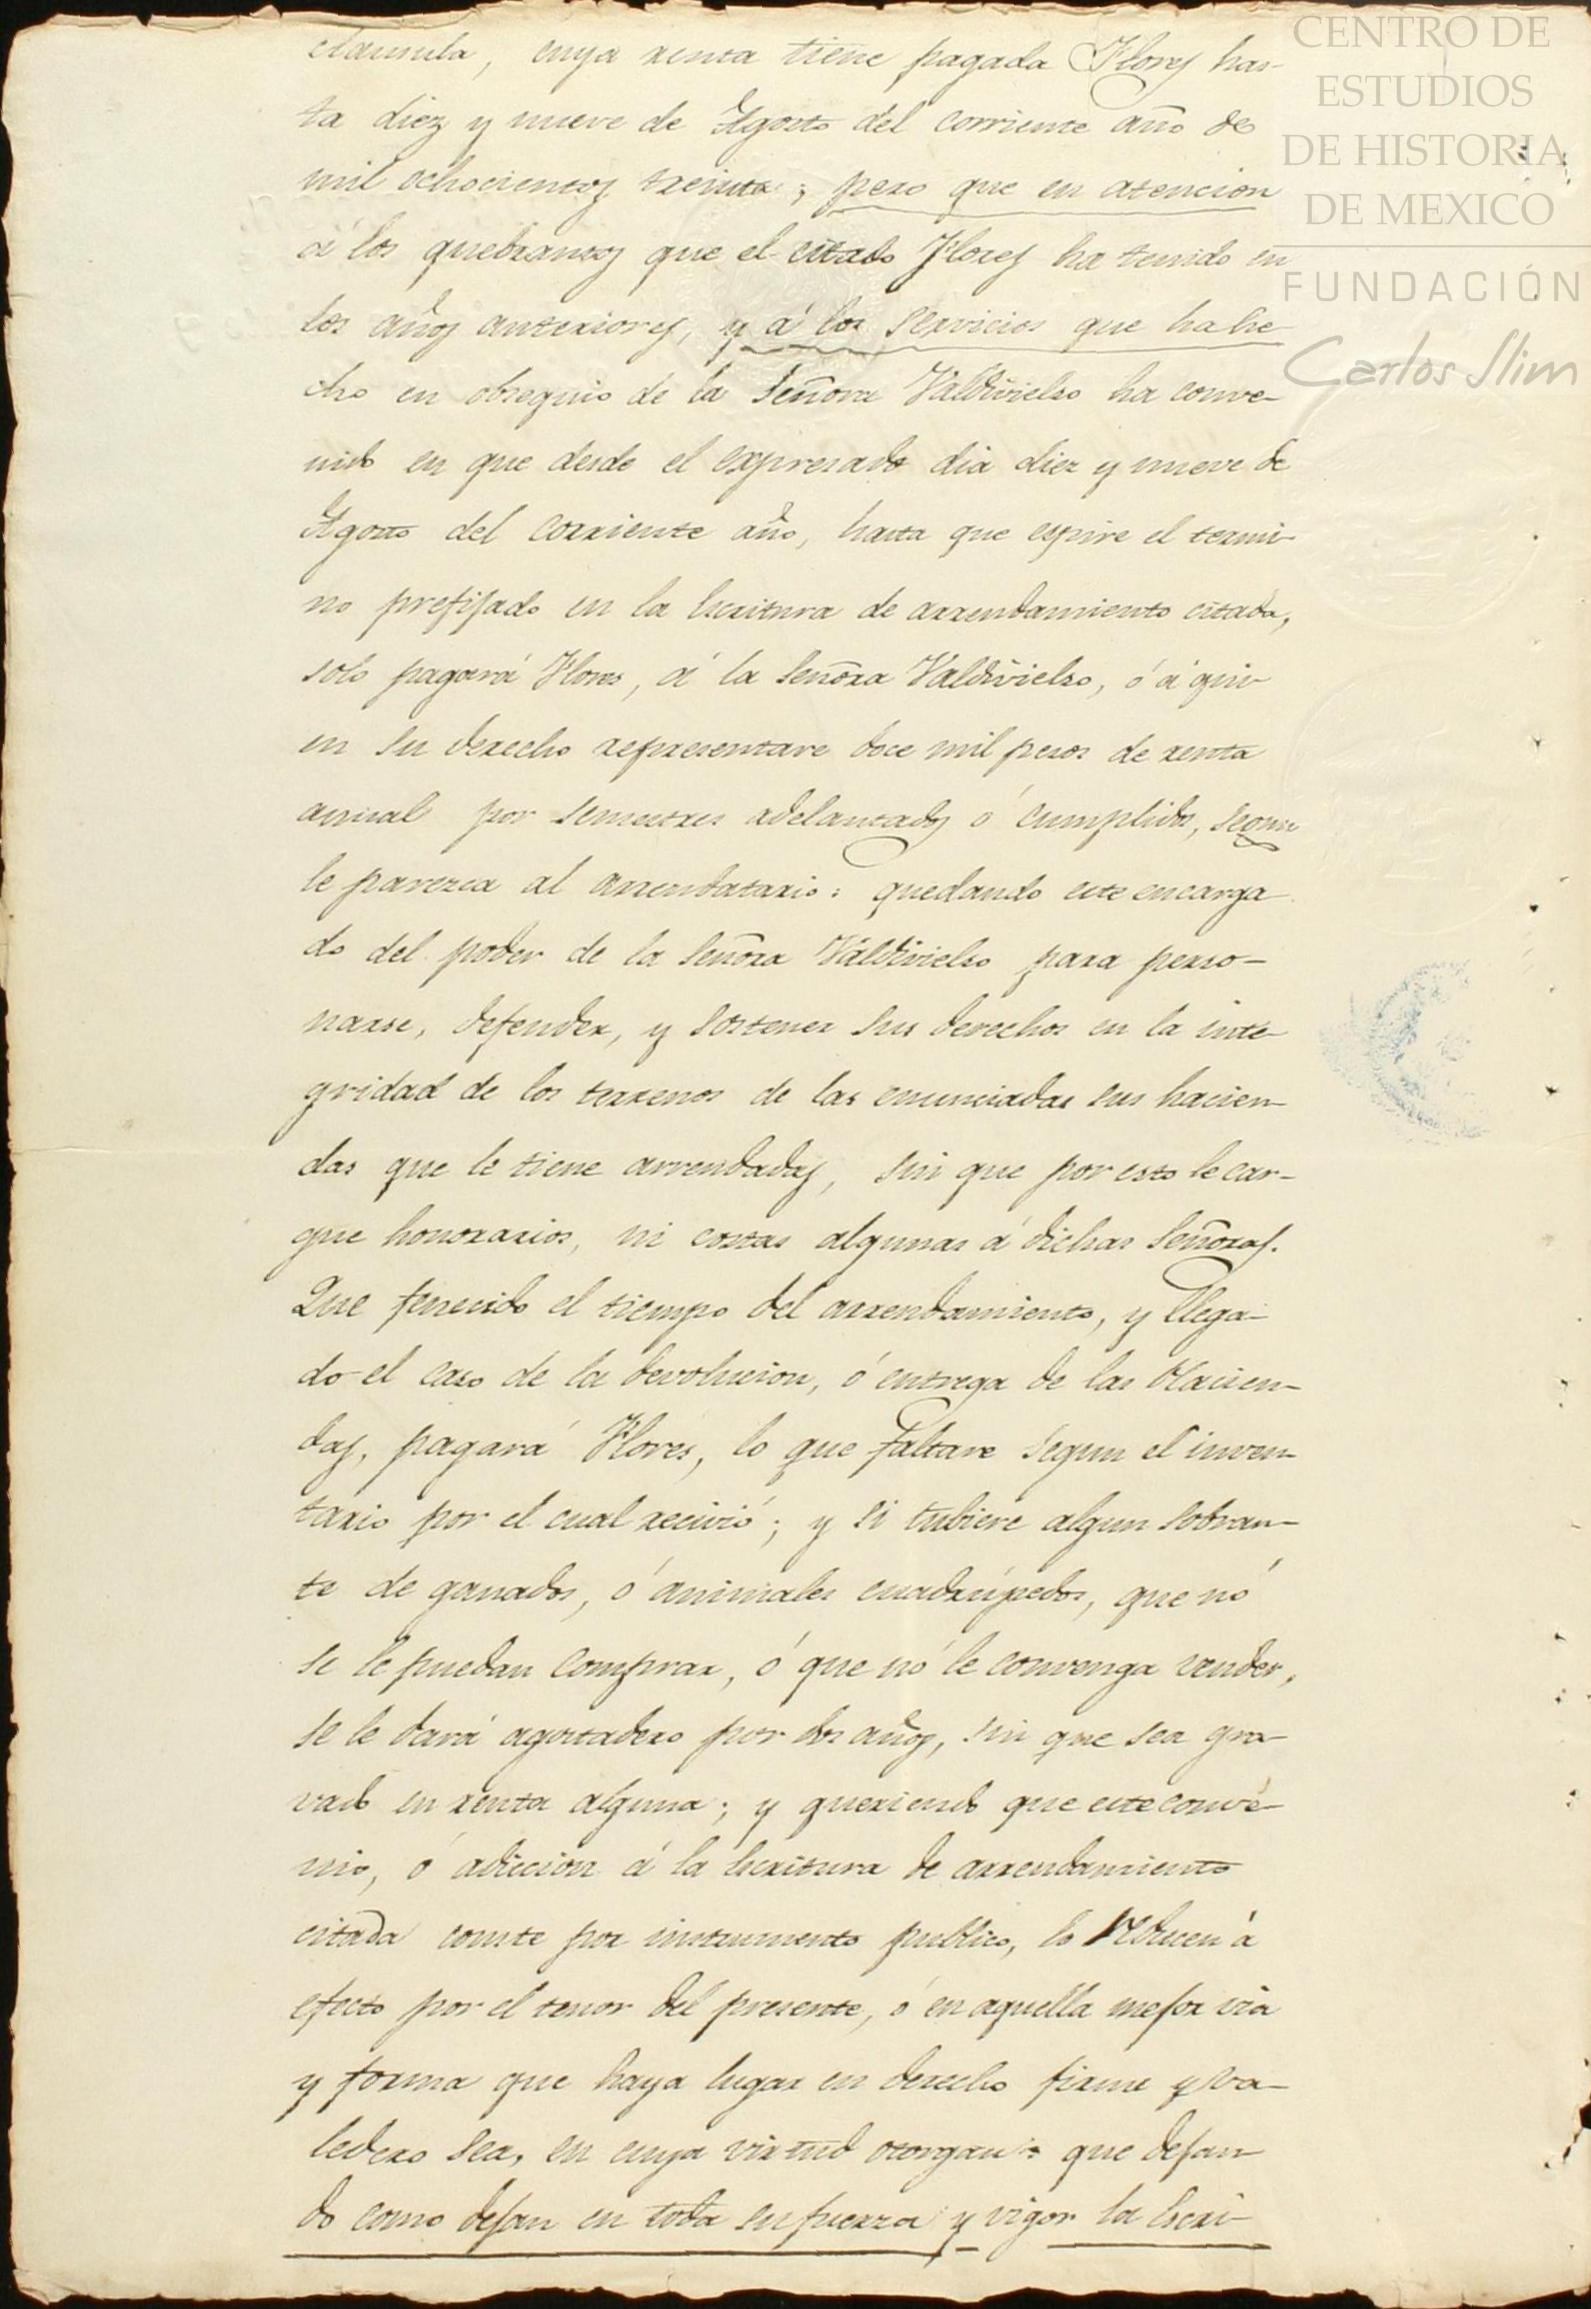 clausula, cuya renta tiene pagada Flores has-
ta diez y nueve de Agosto del corriente año de
mil ochocientos treinta; pero que en atencion
á los quebrantos que el citado Flores ha tenido en
los años anteriores, y á los servicios que ha he-
cho en obsequio de la Señora Valdivielso ha conve-
nido en que desde el expresado dia diez y nueve de
Agosto del corriente año, hasta que espire el termi-
no prefijado en la Escritura de arrendamiento citada,
solo pagará Flores, á la Señora Valdivielso, ó á qui-
en su derecho representare doce mil pesos de renta
anual por semestres adelantados ó cumplidos, segun
le parezca al arrendatario: quedando este encarga
do del poder de la Señora Valdivielso para perso-
narse, defender, y sostener sus derechos en la inte-
gridad de los terrenos de las enunciadas sus hacien-
das que le tiene arrendadas, sin que por esto le car-
gue honorarios, ni costas algunas á dichas Señoras.
Que fenecido el tiempo del arrendamiento, y llega-
do el caso de la devolucion, ó entrega de las Hacien-
das, pagará Flores, lo que faltare segun el inven-
tario por el cual recivió; y si tubiere algun sobran-
te de ganados, ó animales cuadrúpedos, que nó
se le puedan comprar, ó que nó le convenga vender,
se le dará agostadero por dos años, sin que sea gra-
vado en renta alguna; y queriendo que este conve-
nio, ó adiccion á la Escritura de arrendamiento
citada conste por instrumento publico, lo reducen á
efecto por el tenor del presente, ó en aquella mejor via
y forma que haya lugar en derecho firme y va-
ledero sea, en cuya virtud otorgan: que dejan-
do como dejan en toda su fuerza y vigor la Escri-
CENTRO DE
ESTUDIOS
DE HISTORIA
DE MEXICO
FUNDACIÓN
Carlos Slim